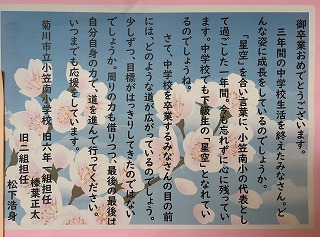 御卒業おめでとうございます。
三年間の中学校生活を終えたみなさん。ど
んな姿に成長をしているのでしょうか。
「星空」を合い言葉に、小笠南小の代表とし
て過ごした一年間。今も忘れずに心に残ってい
ます。中学校でも下級生の「星空」となれてい
るのでしょうね。
さて、中学校を卒業するみなさんの目の前
には、どのような道が広がっているのでしょう。
少しずつ、目標がはっきりしてきたのではない
でしょうか。周りの力も借りつつ、最後の最後は
自分自身の力で、道を進んで行ってください。
いつまでも応援をしています。
菊川市立小笠南小学校 旧六年一組担任
榛葉正太
旧二組担任
松下浩身